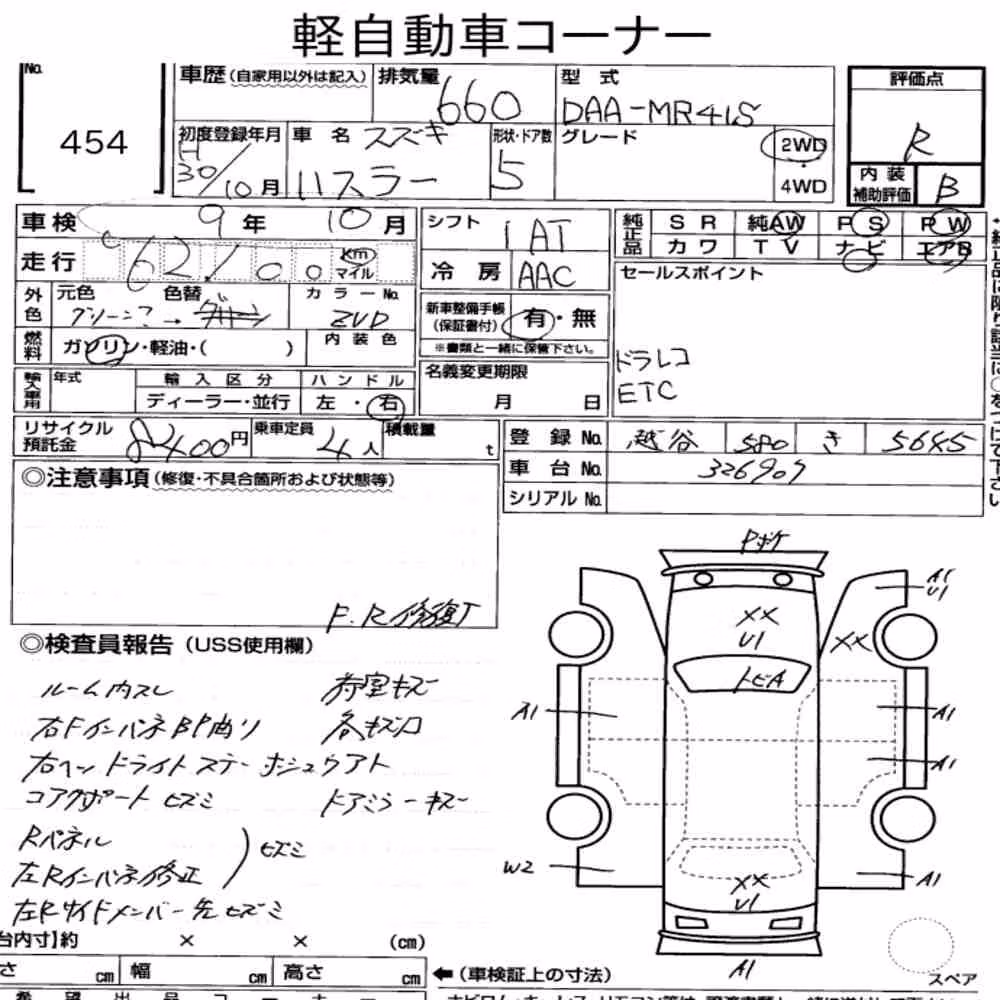 軽自動車コーナー
No. 454
車歴(自家用以外は記入)
排気量 660
型式 DAA-MR41S
評価点 R
初度登録年月 H30/10月
車名 スズキ ハスラー
形状・ドア数 5
グレード
2WD・4WD
内装補助評価 B
車検 9年10月
シフト IAT
純正品 SR 純AW PS PW
カワ TV ナビ エアB
走行 62,100 km マイル
冷房 AAC
セールスポイント
外色 元色 色替 カラーNo.
グリーン2 → ZVD
新車整備手帳(保証書付) 有・無
※書類と一緒に保管下さい。
燃料 ガソリン・軽油・( )
内装色
ドラレコ
ETC
輸入車用 年式 輸入区分 ハンドル
ディーラー・並行 左・右
名義変更期限 月 日
リサイクル預託金 8400円
乗車定員 4人
積載量 t
登録No. 越谷 580 き 5645
車台No. 326907
シリアルNo.
◎注意事項(修復・不具合箇所および状態等)
F.R修復了
◎検査員報告(USS使用欄)
ルーム内スレ 荷室キズ
右FインパネBP曲り 各キズ凹
右ヘッドライトステー ホシュウアト
コアサポートヒズミ ドアミラーキズ
Rパネル
左Rインパネ修正 ) ヒズミ
左Rサイドメンバー先ヒズミ
Pボケ
A1
U1
XX
U1
XX
トビA
A1
A1
A1
W2
XX
U1
A1
A1
スペア
台内寸】約 × × (cm)
さ cm 幅 cm 高さ cm
←(車検証上の寸法)